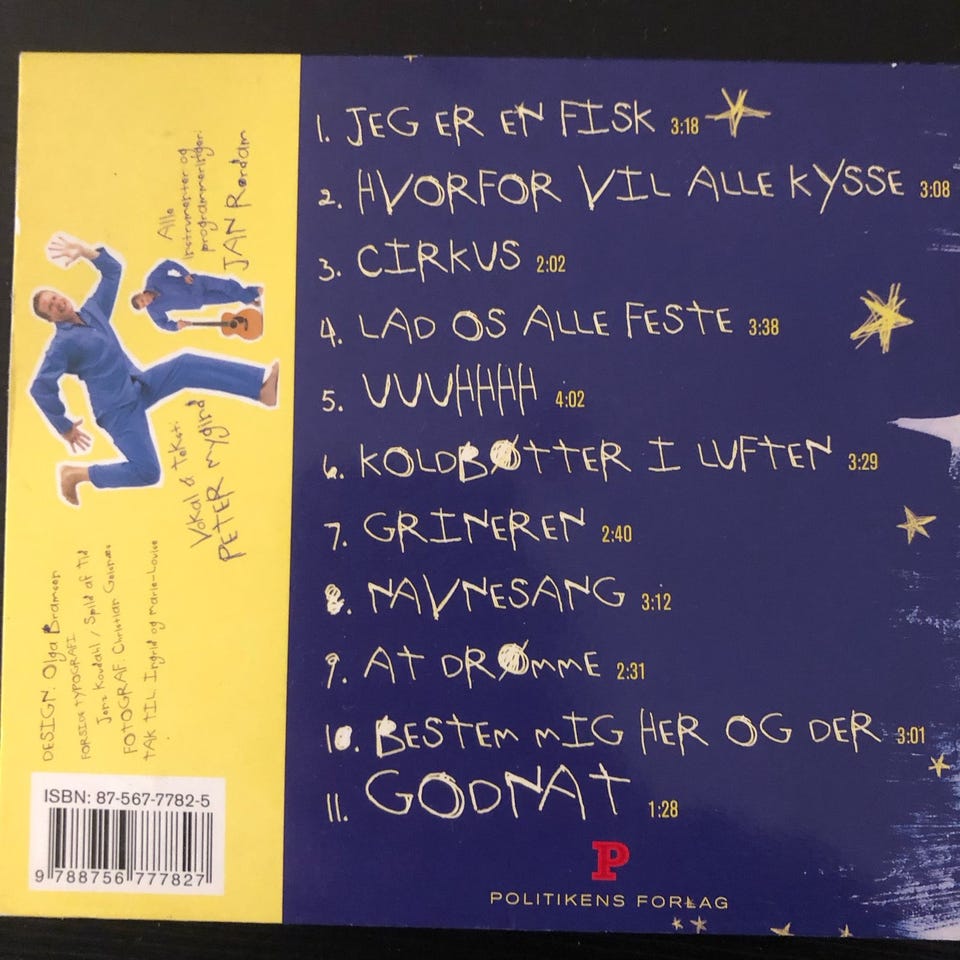 1. JEG ER EN FISK 3:18
2. HVORFOR VIL ALLE KYSSE 3:08
3. CIRKUS 2:02
4. LAD OS ALLE FESTE 3:38
5. UUUHHHH 4:02
6. KOLDBØTTER I LUFTEN 3:29
7. GRINEREN 2:40
8. NAVNESANG 3:12
9. AT DRØMME 2:31
10. BESTEM MIG HER OG DER 3:01
11. GODNAT 1:28
P
POLITIKENS FORLAG
Alle
instrumenter og
programmeringer:
JAN Rørdam
Vokal & Tekst:
PETER Mygind
DESIGN: Olga Bramsen
FORSIDETYPOGRAFI
/ Spild af Tid
FOTOGRAF: Christian
TAK TIL Ingrid og Marie-Louise
ISBN: 87-567-7782-5
9 788756 777827